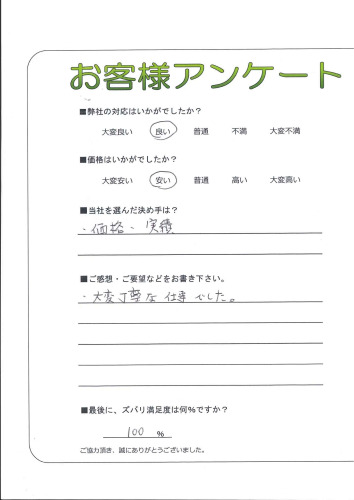 お客様アンケート
■弊社の対応はいかがでしたか？
大変良い 良い 普通 不満 大変不満
■価格はいかがでしたか？
大変安い 安い 普通 高い 大変高い
■当社を選んだ決め手は？
・価格・実績
■ご感想・ご要望などをお書き下さい。
・大変丁寧な仕事でした。
■最後に、ズバリ満足度は何％ですか？
100 ％
ご協力頂き、誠にありがとうございました。